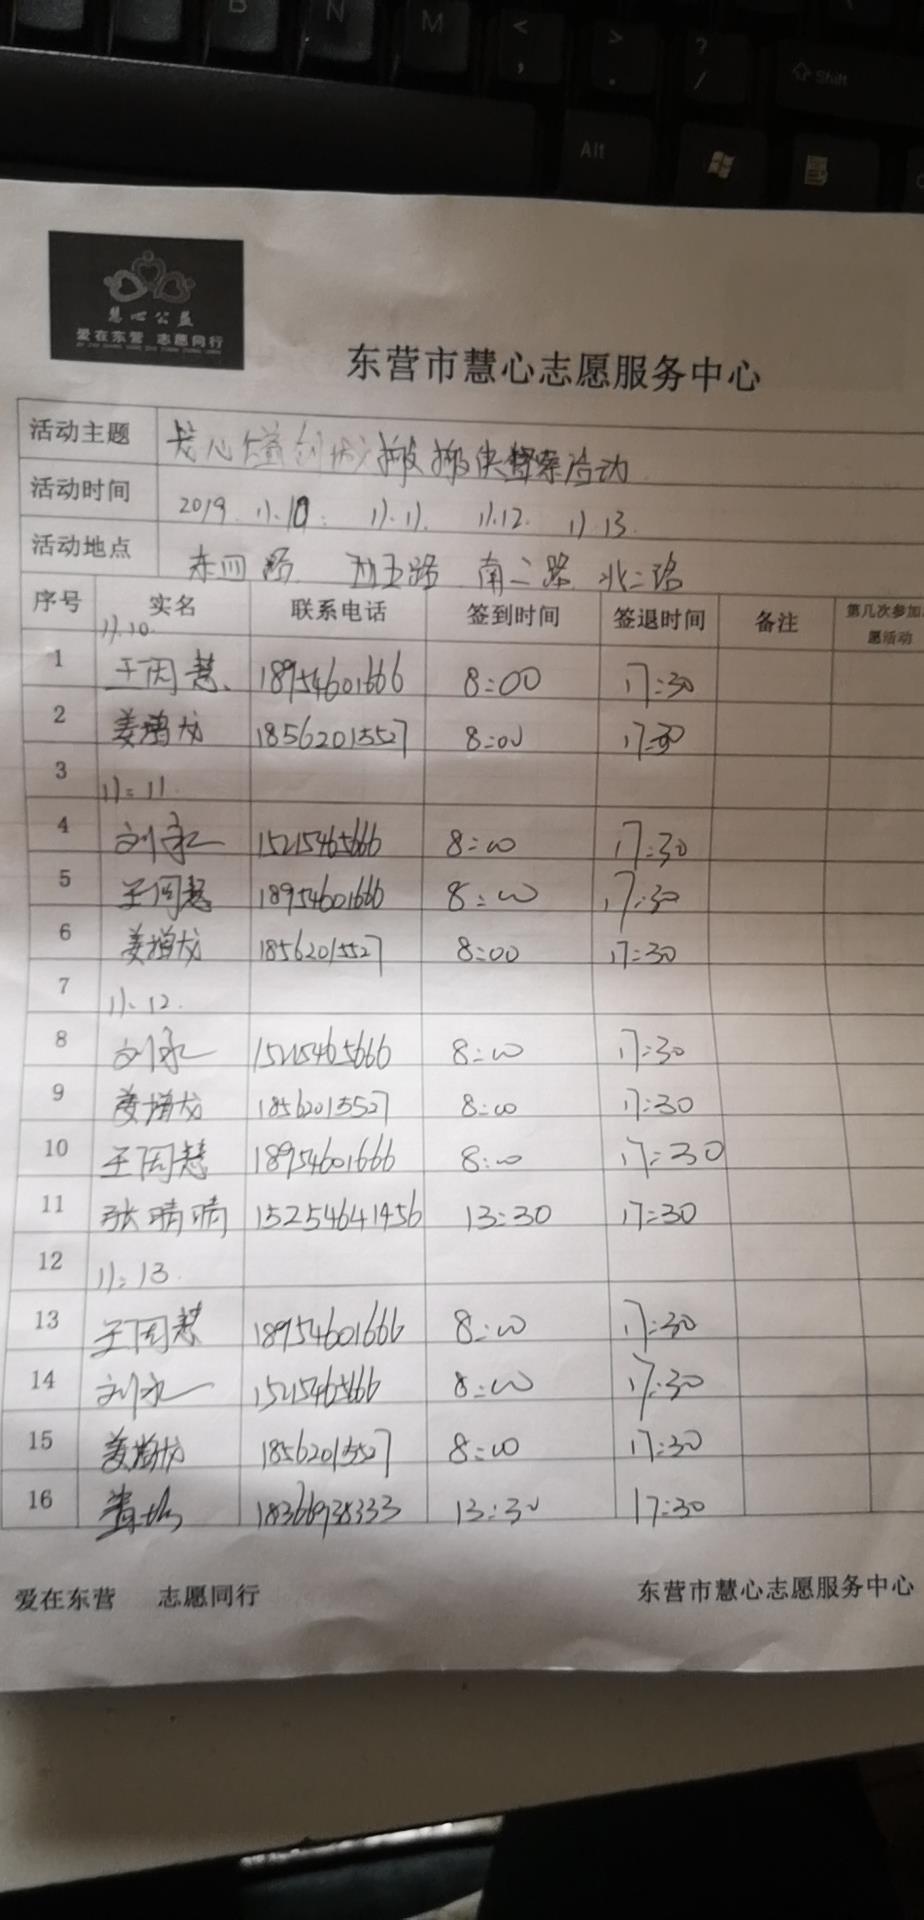 B N M < , > . ? / Shift
Alt
慧心公益
爱在东营 志愿同行
东营市慧心志愿服务中心
活动主题 创城 活动
活动时间 2019. 11.10. 11.11. 11.12. 11.13.
活动地点 东四路 西五路 南二路 北二路
序号 实名 联系电话 签到时间 签退时间 备注 第几次参加 愿活动
11.10.
1 王周慧 18954601666 8:00 17:30
2 姜增龙 18562015527 8:00 17:30
3 11:11
4 刘永 15215465666 8:00 17:30
5 王周慧 18954601666 8:00 17:30
6 姜增龙 18562015527 8:00 17:30
7 11.12.
8 刘永 15215465666 8:00 17:30
9 姜增龙 18562015527 8:00 17:30
10 王周慧 18954601666 8:00 17:30
11 张晴晴 15254641456 13:30 17:30
12 11:13.
13 王周慧 18954601666 8:00 17:30
14 刘永 15215465666 8:00 17:30
15 姜增龙 18562015527 8:00 17:30
16 18366938333 13:30 17:30
爱在东营 志愿同行 东营市慧心志愿服务中心